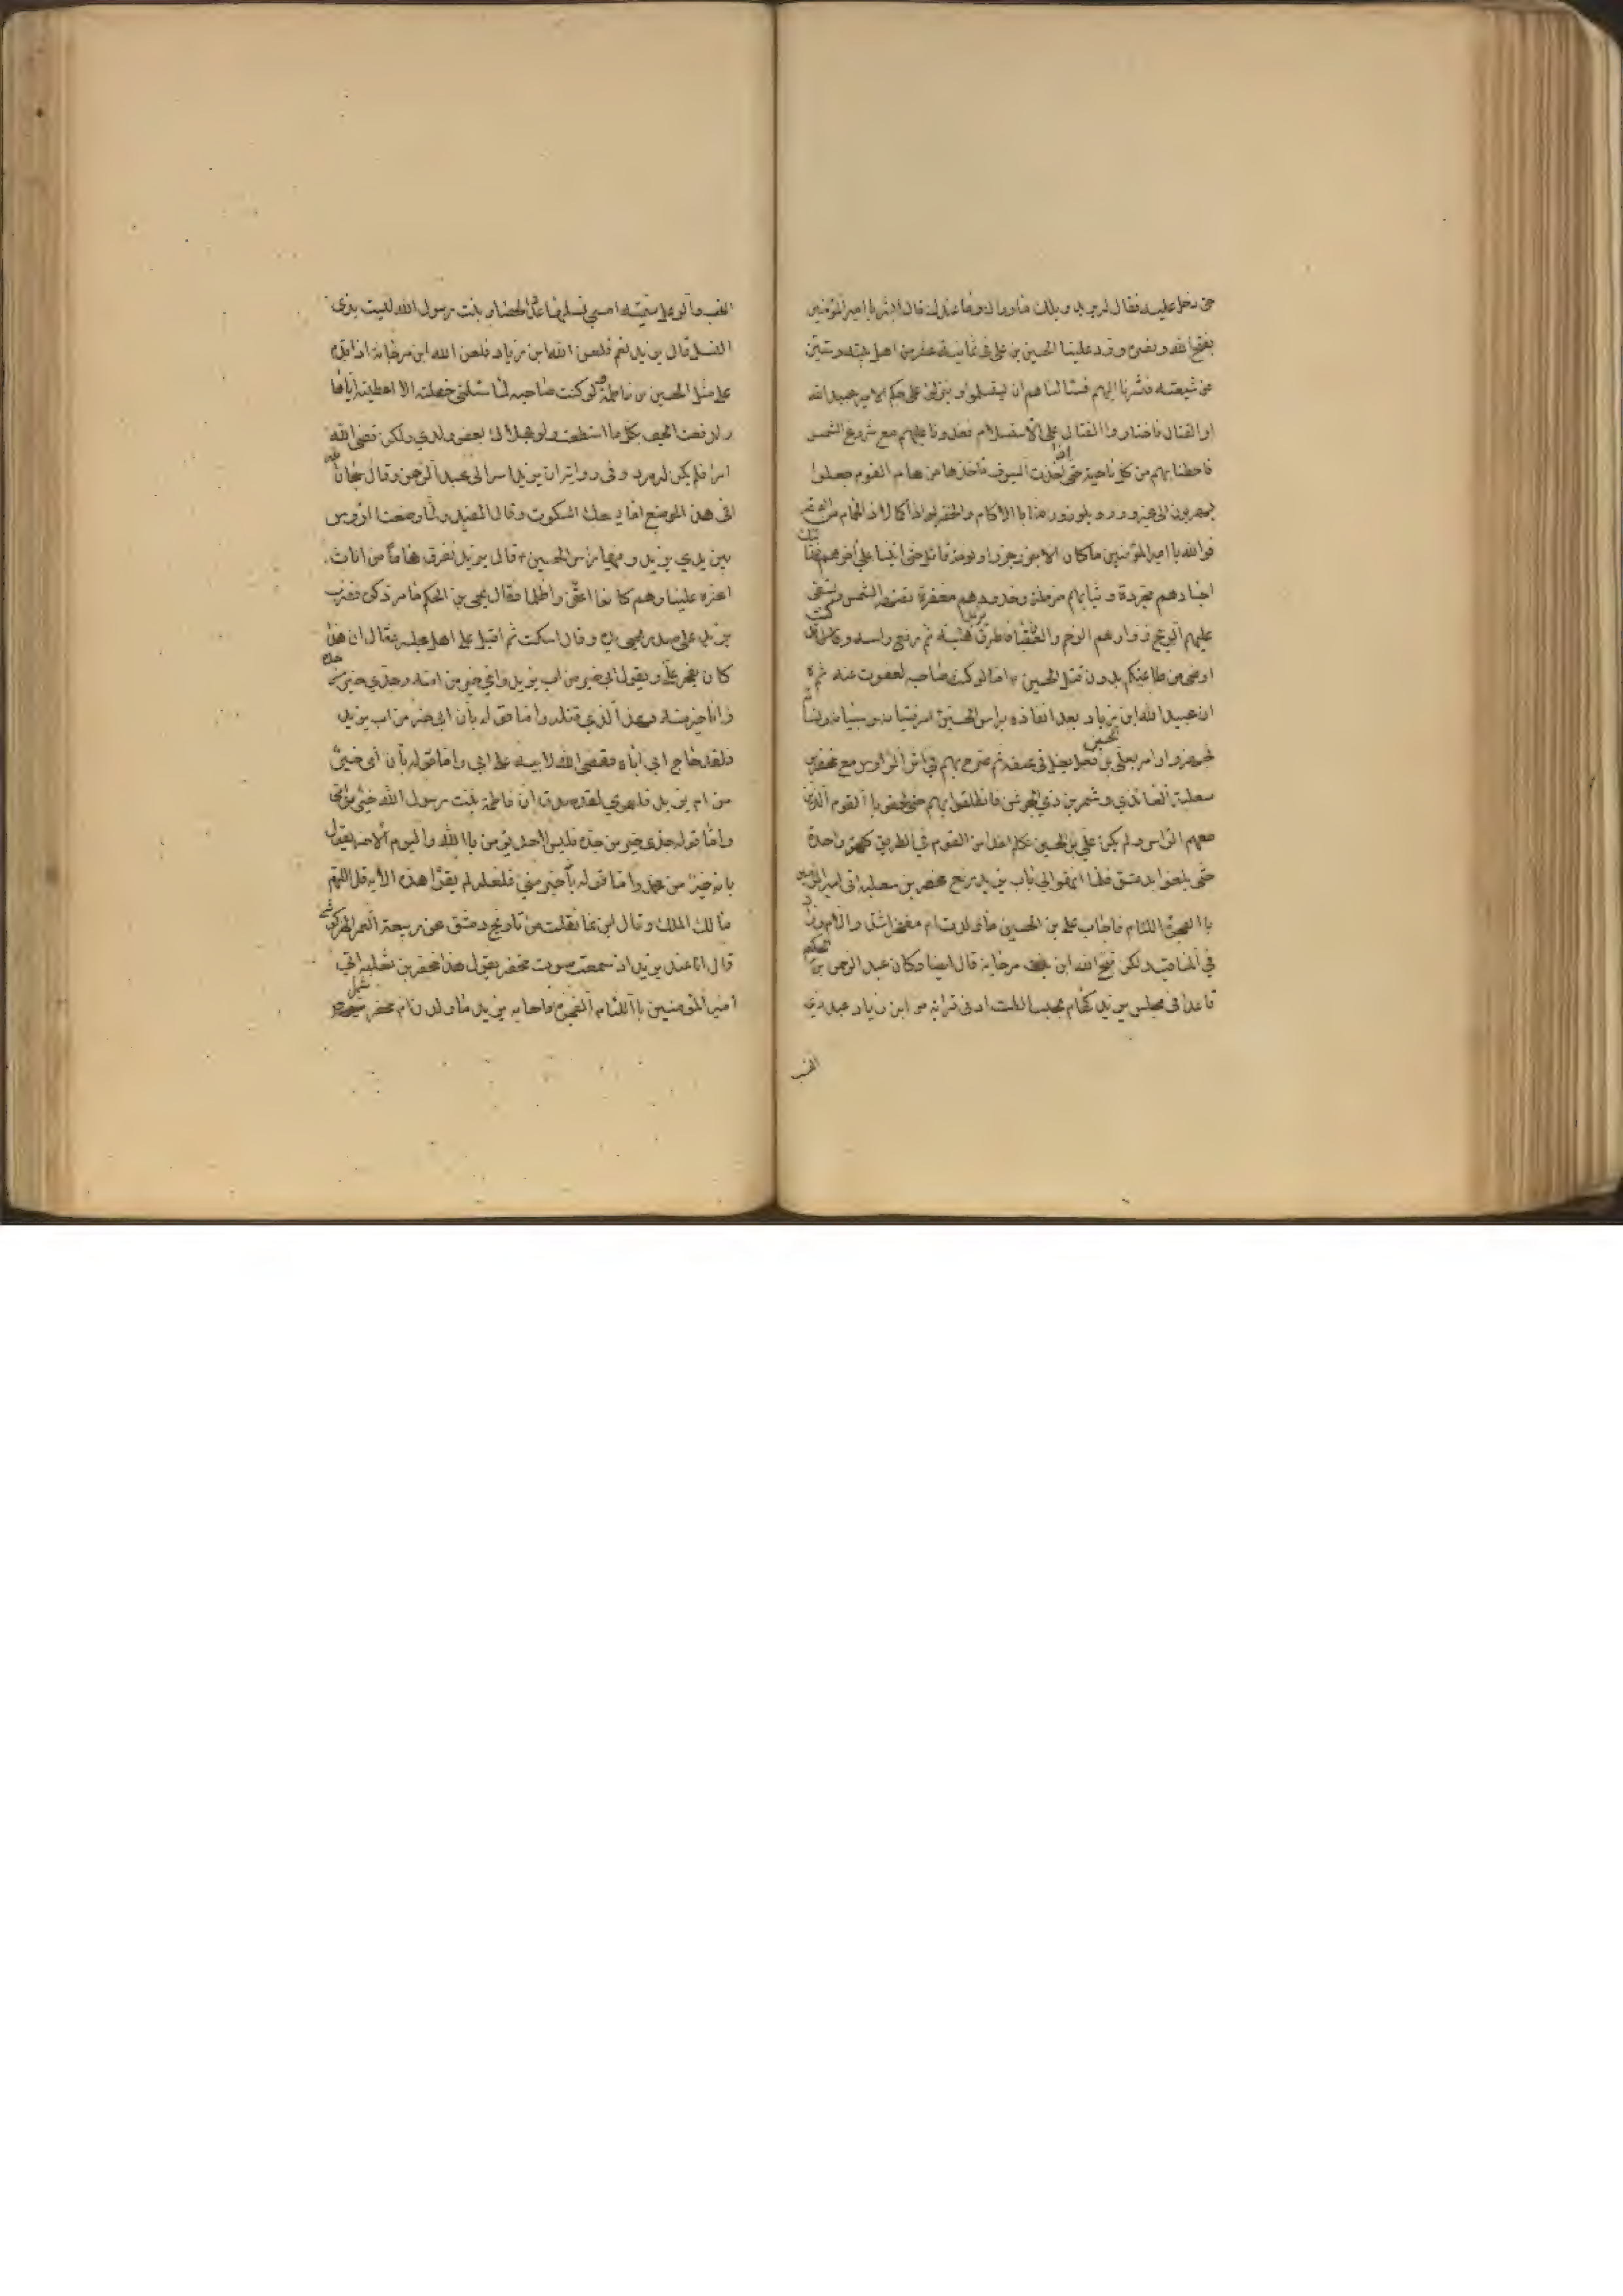 حتى دخل عليه فقال لريزيد ويلك ما وراك وما عندك قال ابشر يا امير المؤمنين
بفتح الله ونصره ورد علينا الحسين بن علي في ثمانية عشر من اهل بيته وستين
من شيعته فسرنا اليهم فسئالناهم ان يستسلموا وينزلوا على حكم الامير عبيد الله
او القتال فاختاروا القتال على الاستسلام فعدونا عليهم مع شروق الشمس
فاحطنا بهم من كل ناحية حتى اخذت السيوف مأخذها من هام القوم جعلوا
يهربون الى غير وزر ويلوذون منا با الاكام والحفر لواذا كما لاذ الحمام من الصقر
فوالله يا امير المؤمنين ما كان الا جزر جزورا ونومة قائل حتى اتينا على آخرهم فهاتيك
اجسادهم مجردة وثيابهم مرملة وخدودهم معفرة تصهرهم الشمس وتسفى
عليهم الريح زوارهم الرخم والعقبان فاطرق يزيد هنيئة ثم رفع راسه وقال قد كنت
ارضى من طاعتكم بدون قتل الحسين اما لو كنت صاحبه لعفوت عنه ثم
ان عبيد الله ابن زياد بعد انفاذه براس الحسين امر نسائه وصبيانه
فجهزوا وامر بعلي بن الحسين فغل بغل في عنقه ثم سرح بهم في اثر الرؤس مع محفر بن
ثعلبة العائذي وشمر بن ذي الجوشن فانطلقوا بهم حتى لحقوا با القوم الذين
معهم الراس ولم يكن علي بن الحسين يكلم احدا من القوم في الطريق كلمة واحدة
حتى بلغوا دمشق فلما انتهوا الى باب يزيد رفع محفر بن ثعلبه اتى امير المؤمنين
با الفجرة اللئام فاجاب علي بن الحسين ما ولدت ام محفر اشر والأم ورد
في المناقب ولكن قبح الله ابن مرجانه قال ايضا وكان عبد الرحمن بن الحكم
قاعدا في مجلس يزيد لهام بجنب الطف ادنى قرابه من ابن زياد عبد ذي
الحسب
الحسب وآلوعلى سميّه امسى نسلها عدد الحصا وبنت رسول الله ليست بذى
النسل قال يزيد نعم فلعن الله ابن زياد فلعن الله ابن مرجانه اذ اقدم
على مثل الحسين بن فاطمة لو كنت صاحبه لما سئلني خصلة الا اعطيته اياها
ولدفعت الحتف بكل ما استطعت ولو بهلاك بعض ولدي ولكن قضى الله
امرا فلم يكن له مرد وفي رواية ان يزيد اسر الى عبد الرحمن وقال سبحان الله
افى هذا الموضع اما يسعك السكوت وقال المفيد ولما وضعت الرؤس
بين يدي يزيد وفيها راس الحسين قال يزيد نفرق هاما من اناث
اعزه علينا وهم كانوا اعق واظلما فقال يحيى بن الحكم ما مر ذكره فضرب
يزيد على صدر يحيى يده وقال اسكت ثم اقبل على اهل مجلسه فقال ان هذا
كان يفخر علي ويقول ابي خير من اب يزيد وامي خير من امه وجدي خير من جده
وانا خير منه وهذا الذي قتله واما قوله بأن ابي خير من اب يزيد
فلقد حاج ابي اباه فقضى الله لابيه على ابي واما قوله بأن امي خير
من ام يزيد فلعمري لقد صدق ان فاطمة بنت رسول الله خير من امي
واما قوله جدي خير من جده فليس لاحد يؤمن با الله واليوم الاخر يقول
بانه خير من محمد واما قوله بأنه خير مني فلعله لم يقرا هذه الايه قل اللهم
مالك الملك وقال ابن نما نقلت من تاريخ دمشق عن ربيعة
قال انا عند يزيد اذ سمعت صوت محفر يقول هذا محفر بن ثعلبه اتى
امير المؤمنين با اللئام الفجرة فاجابه يزيد ما ولدت ام محفر